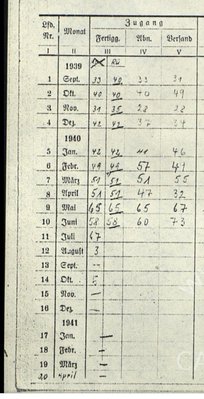 Lfd. Nr. Monat Zugang
Fertigg. Abn. Versand
I II III IV V
1939
1 Sept. 33 40 33 31
2 Okt. 40 40 40 49
3 Nov. 31 35 28 28
4 Dez. 42 42 37 37
1940
5 Jan. 42 42 41 46
6 Febr. 48 48 57 41
7 März 51 51 51 55
8 April 51 51 47 32
9 Mai 65 65 65 67
10 Juni 58 58 60 73
11 Juli 67
12 August 3
13 Sept. –
14 Okt. 5
15 Nov. –
16 Dez. –
1941
17 Jan. –
18 Febr. –
19 März –
20 April –